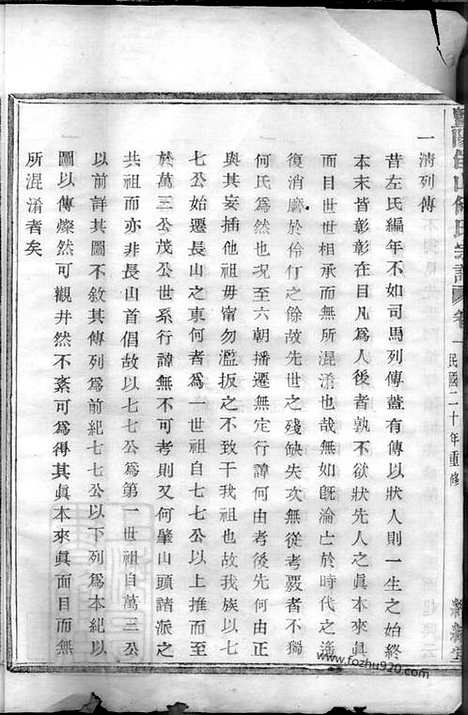 氏宗譜 卷一 民國二十年重修
一淸列傳
昔左氏編年不如司馬列傳蓋有傳以狀人則一生之始終
本末皆彰彰在目凡爲人後者孰不欲狀先人之眞本來眞
面目世世相承而無所混淆也哉無如旣淪亡於時代之遙
復消磨於伶仃之餘故先世之殘缺失次無從考覈者不獨
何氏爲然也况至六朝播遷無定行諱何由考後先何由正
與其妄插他祖毋甯勿濫扳之不致干我祖也故我族以七
七公始遷長山之東何者爲一世祖自七七公以上推而至
於萬三公茂公世系行諱無不可考則又何肇山頭諸派之
共祖而亦非長山首倡故以七七公爲第一世祖自萬三公
以前詳其圖不敘其傳列爲前紀七七公以下列爲本紀以
圖以傳燦然可觀井然不紊可爲得其眞本來眞面目而無
所混淆者矣
www.fozhu920.com